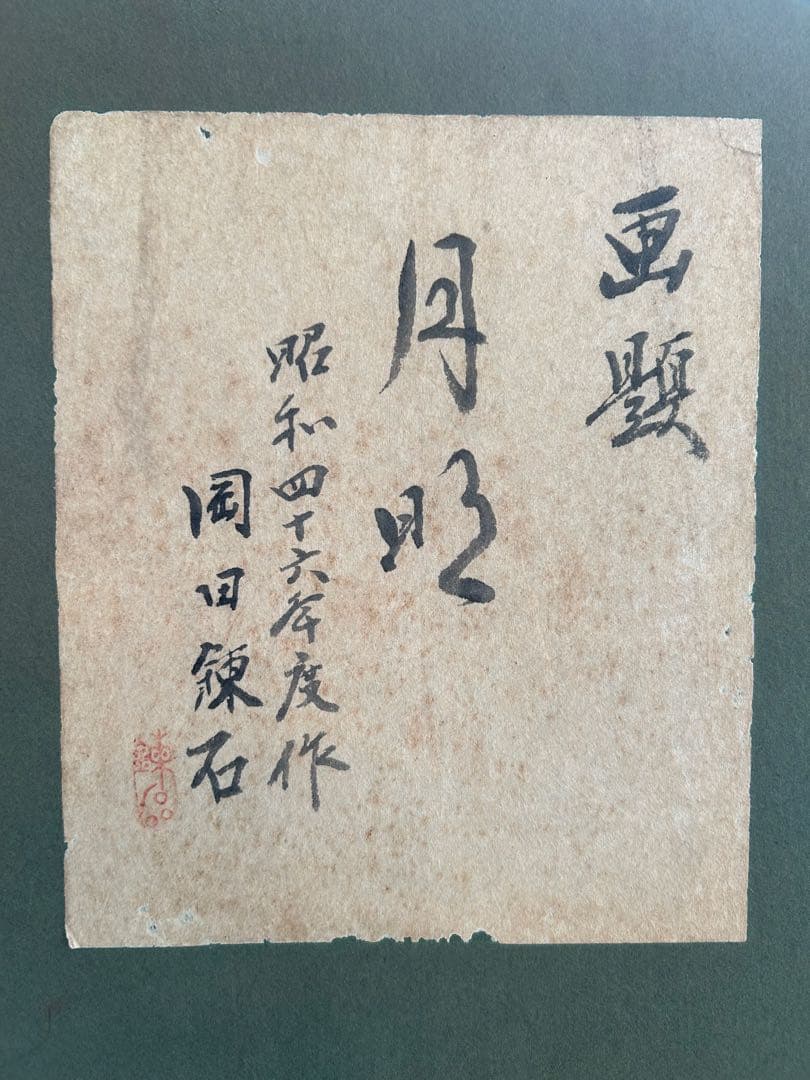 画題
月明
昭和四十六年度作
岡田錬石
錬石